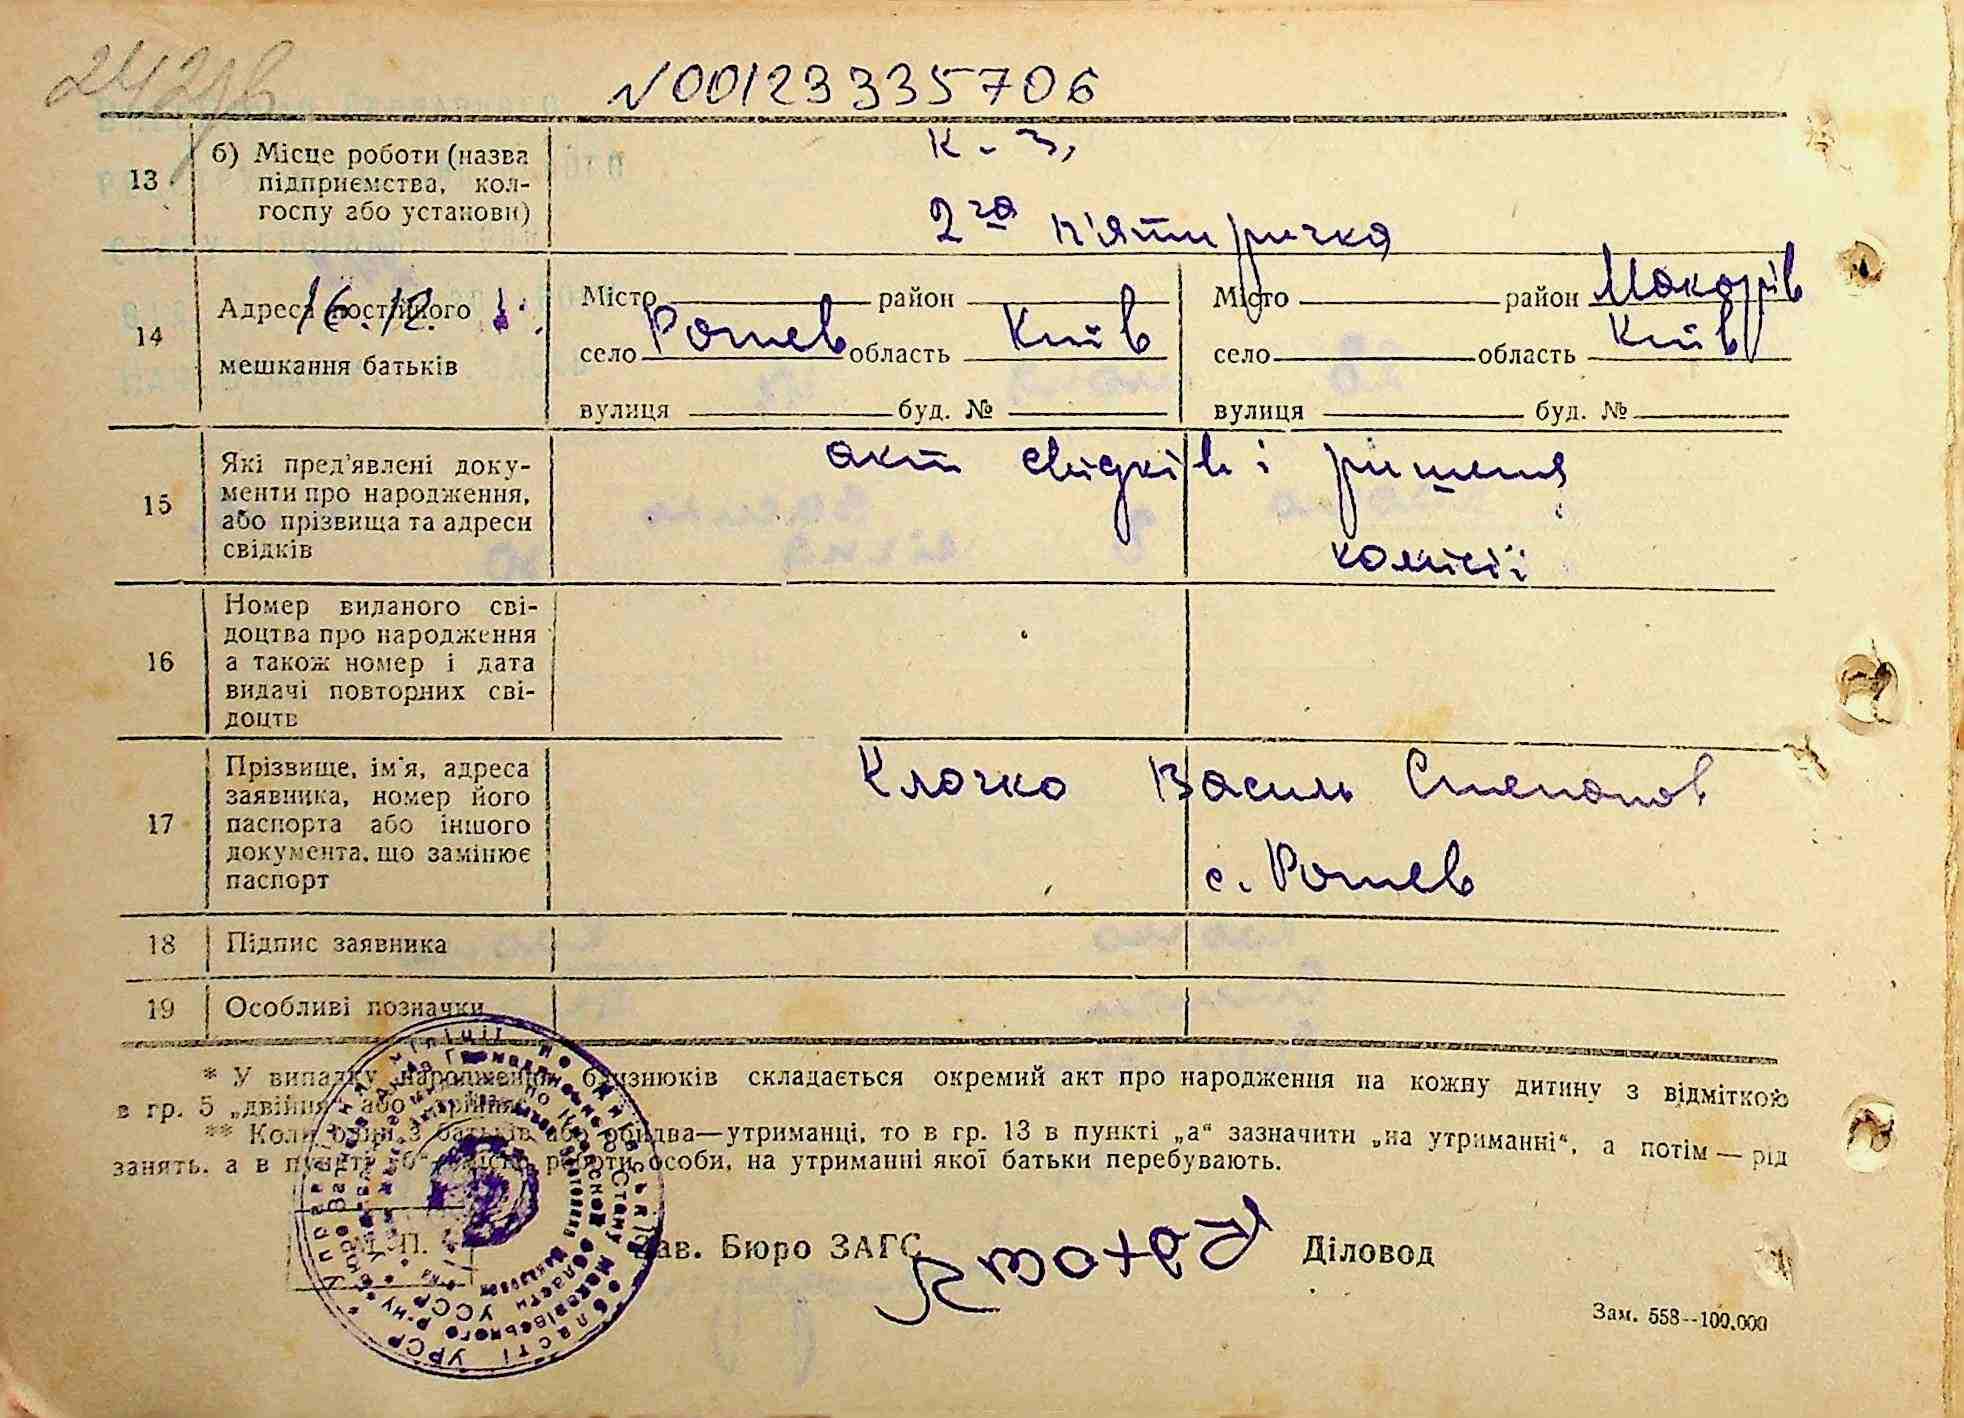 N00123335706
13 б) Місце роботи (назва підприємства, кол-
госпу або установи)
К. з,
2га п'ятирічка
14 Адреса постійного
мешкання батьків
16.12.
Місто район
село Рожев область Київ
вулиця буд. №
Місто район Макарів
село область Київ
вулиця буд. №
15 Які пред'явлені доку-
менти про народження,
або прізвища та адреси
свідків
акт свідків і рішення
комісії
16 Номер виданого сві-
доцтва про народження
а також номер і дата
видачі повторних сві-
доцтв
17 Прізвище, ім'я, адреса
заявника, номер його
паспорта або іншого
документа, що замінює
паспорт
Клочко Василь Степанов
с. Рожев
18 Підпис заявника
19 Особливі позначки
* У випадку народження близнюків складається окремий акт про народження на кожну дитину з відміткою
в гр. 5 „двійня“ або „трійня“.
** Коли один з батьків або обидва—утриманці, то в гр. 13 в пункті „а“ зазначити „на утриманні“, а потім — рід
занять, а в пункті „б“ місце роботи особи, на утриманні якої батьки перебувають.
М. П. Зав. Бюро ЗАГС Діловод
Зам. 558--100.000